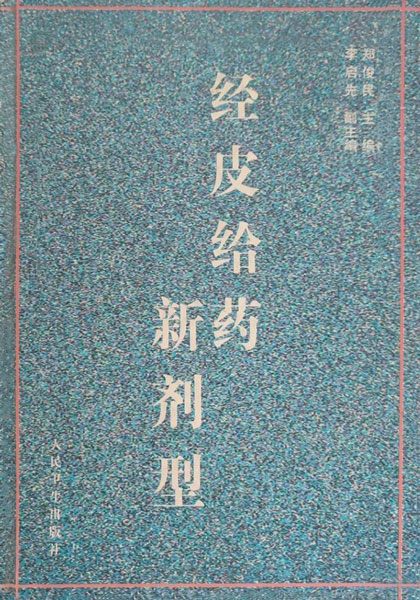 郑俊民 主编
李启先 副主编
经皮给药
新剂型
人民卫生出版社